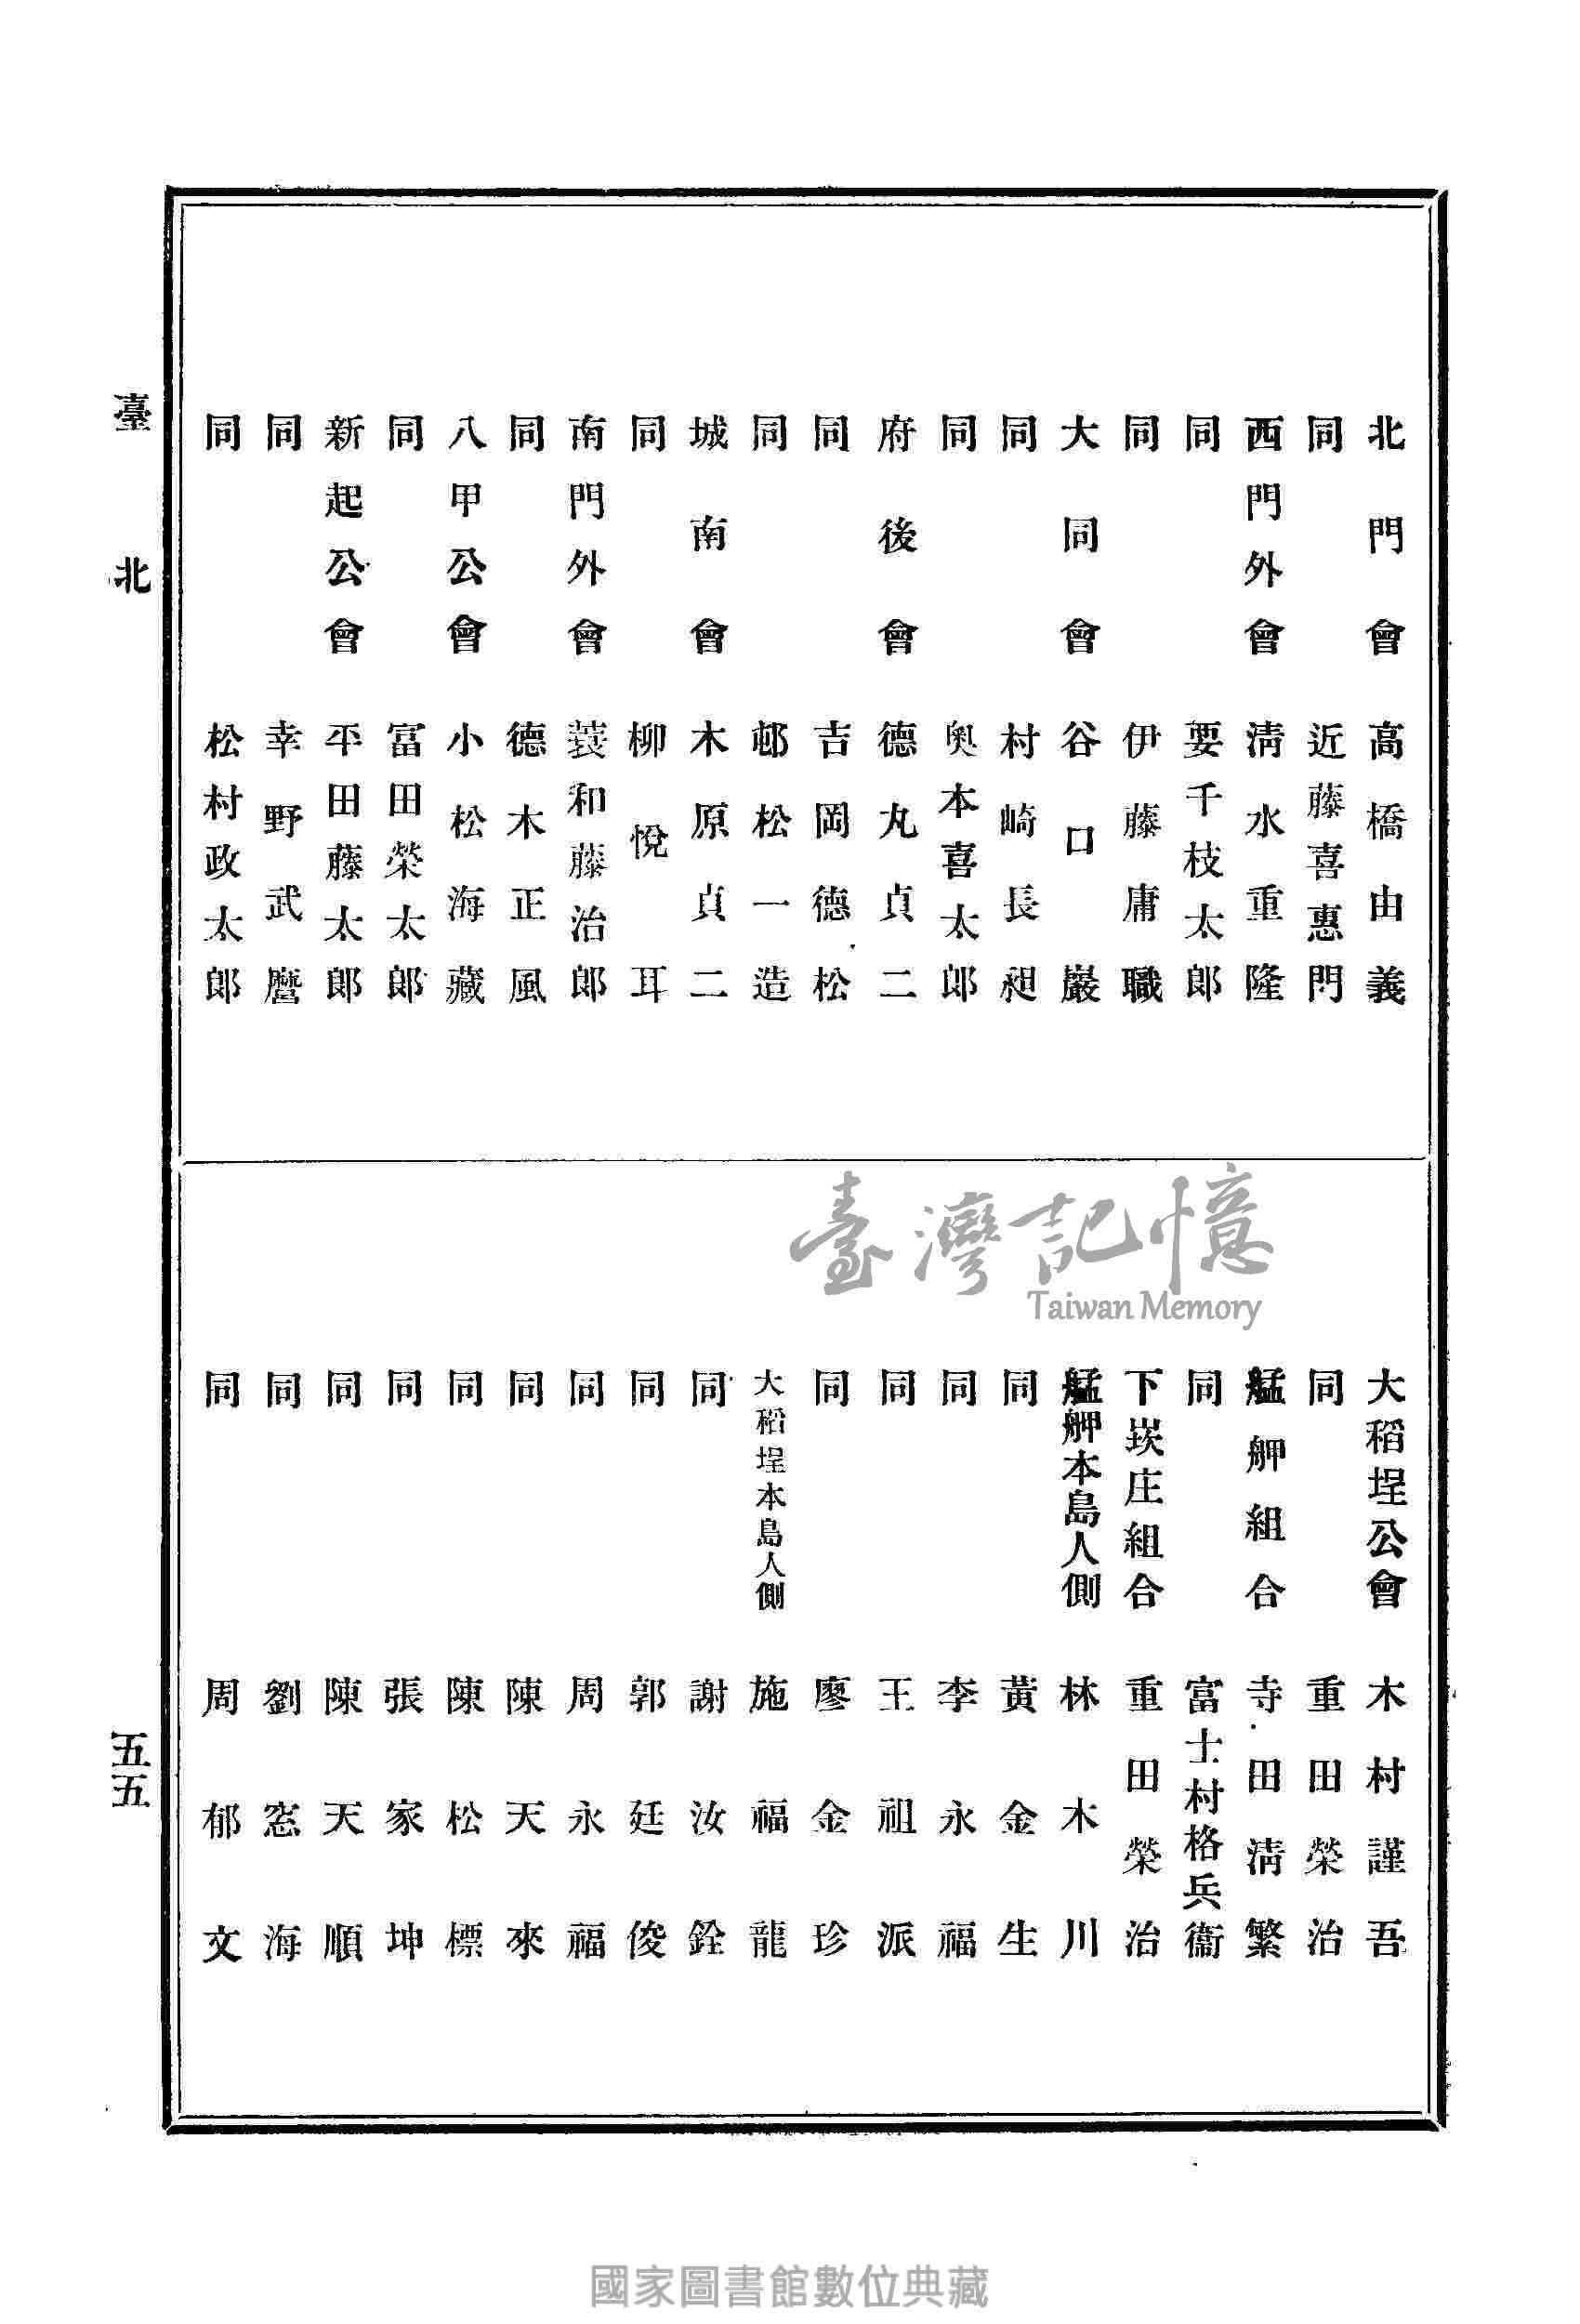 北門會 高橋由義
同 近藤喜惠門
西門外會 淸水重隆
同 要千枝太郎
同 伊藤庸職
大同會 谷口巖
同 村崎長昶
同 奧本喜太郎
府後會 德丸貞二
同 吉岡德松
同 邨松一造
城南會 木原貞二
同 柳悅耳
南門外會 蓑和藤治郎
同 德木正風
八甲公會 小松海藏
同 富田榮太郎
新起公會 平田藤太郎
同 幸野武麿
同 松村政太郎
大稻埕公會 木村謹吾
同 重田榮治
艋舺組合 寺田淸繁
同 富士村格兵衞
下崁庄組合 重田榮治
艋舺本島人側 林木川
同 黃金生
同 李永福
同 王祖派
同 廖金珍
大稻埕本島人側 施福龍
同 謝汝銓
同 郭廷俊
同 周永福
同 陳天來
同 陳松標
同 張家坤
同 陳天順
同 劉窓海
同 周郁文
臺北
五五
臺灣記憶
Taiwan Memory
國家圖書館數位典藏